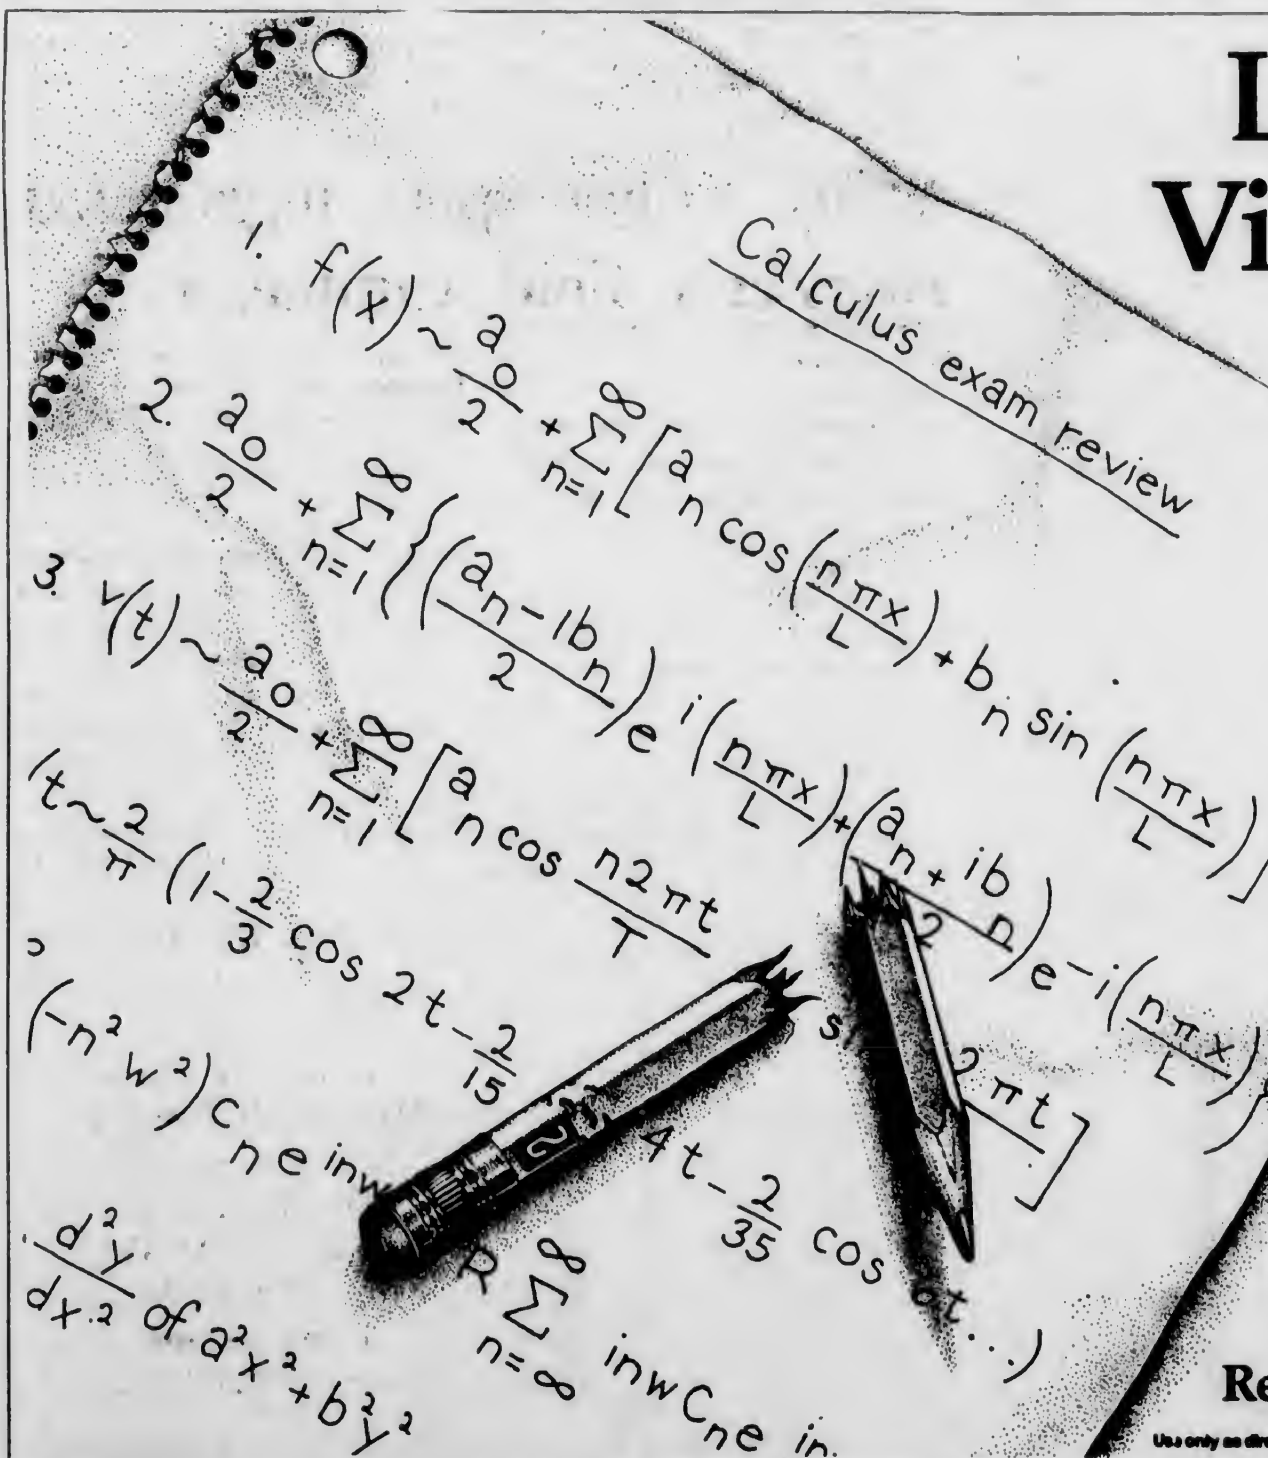 L
Vi
Calculus exam review
1. f(x) ~ a₀/2 + ∑ₙ₌₁^∞ [aₙ cos(nπx/L) + bₙ sin(nπx/L)]
2. a₀/2 + ∑ₙ₌₁^∞ {((aₙ - ibₙ)/2) e^i(nπx/L) + ((aₙ + ibₙ)/2) e^-i(nπx/L)}
3. v(t) ~ a₀/2 + ∑ₙ₌₁^∞ [aₙ cos n2πt/T s 2πt]
t ~ 2/π (1 - 2/3 cos 2t - 2/15 4t - 2/35 cos 6t...)
(-n²w²) cₙe inw R ∑ₙ₌∞^∞ inwCₙe in
d²y/dx² of a²x² + b²y²
Re
Use only as dire